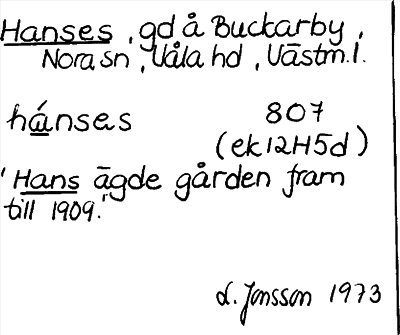 Hanses , gd å Buckarby ,
Nora sn , Våla hd , Västm. l.
hánses 807
(ek 12H5d)
'Hans ägde gården fram
till 1909.'
L. Jonsson 1973